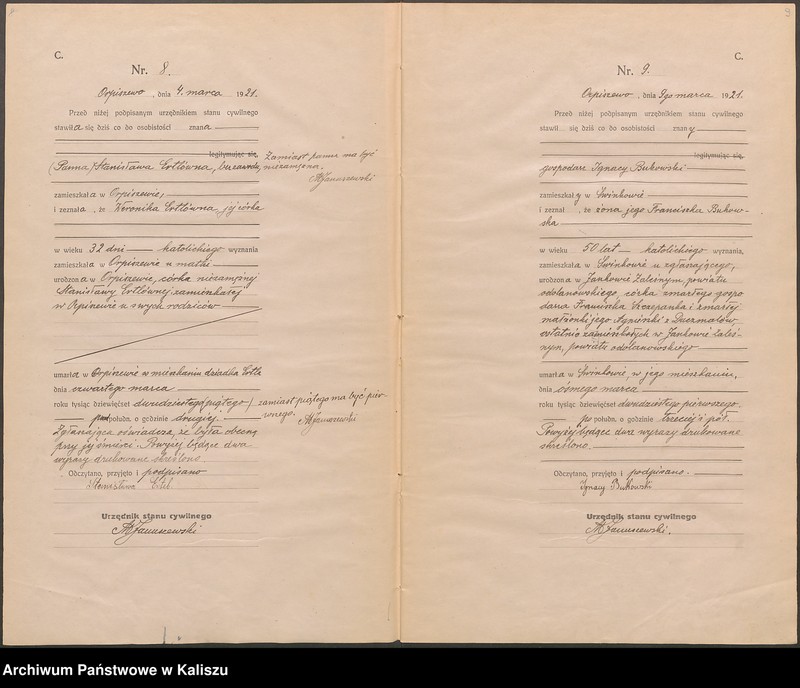 C.
Nr. 8.
Orpiszewo, dnia 4. marca 1921.
Przed niżej podpisanym urzędnikiem stanu cywilnego
stawiła się dziś co do osobistości znana
legitymując się,
(Panna) Stanisława Ertlówna,
zamieszkała w Orpiszewie,
i zeznała, że Weronika Ertlówna, jej córka
w wieku 32 dni — katolickiego wyznania
zamieszkała w Orpiszewie u matki
urodzona w Orpiszewie, córka niezamężnej
Stanisławy Ertlównej zamieszkałej
w Orpiszewie u swych rodziców
umarła w Orpiszewie w mieszkaniu dziadka Ertla
dnia czwartego marca
roku tysiąc dziewięćset dwudziestego (piątego)
połudn. o godzinie drugiej
Zgłaszająca oświadcza, że była obecną
przy jej śmierci. Powyżej będące dwa
wyrazy drukowane skreślono.
Odczytano, przyjęto i podpisano
Urzędnik stanu cywilnego
Januszewski
Zamiast panna ma być
niezamężna.
Januszewski
zamiast piątego ma być pier-
wszego.
Januszewski
9
C.
Nr. 9.
Orpiszewo, dnia 9go marca 1921.
Przed niżej podpisanym urzędnikiem stanu cywilnego
stawił się dziś co do osobistości znany
legitymując się,
gospodarz Ignacy Bukowski
zamieszkały w Swinkowie
i zeznał, że żona jego Franciszka Bukow-
ska
w wieku 50 lat — katolickiego wyznania,
zamieszkała w Swinkowie u zgłaszającego,
urodzona w Jankowie Zaleśnym, powiatu
odolanowskiego, córka zmarłego gospo
darza Franciszka Szczepanka i zmarłej
małżonki jego Agnieszki z
ostatnio zamieszkałych w Jankowie Zaleś-
nym, powiatu odolanowskiego
umarła w Swinkowie, w jego mieszkaniu,
dnia ósmego marca
roku tysiąc dziewięćset dwudziestego pierwszego
po połudn. o godzinie trzeciej i pół.
Powyżej będące dwa wyrazy drukowane
skreślono.
Odczytano, przyjęto i podpisano
Ignacy Bukowski
Urzędnik stanu cywilnego
Januszewski.
Archiwum Państwowe w Kaliszu